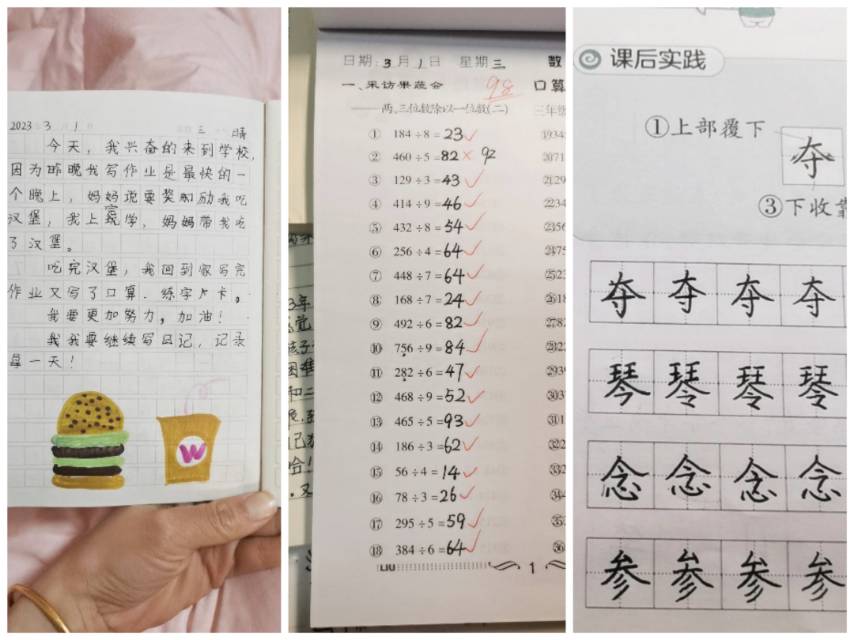 2023年3月1日 三 晴
今天，我兴奋的来到学校，
因为昨晚我写作业是最快的一
个晚上，妈妈说要奖励我吃
汉堡，我上完学，妈妈带我吃
了汉堡。
吃完汉堡，我回到家写完
作业又写了口算．练字卡。
我要更加努力，加油！
我我要继续写日记，记录
每一天！
W
日期：3月1日 星期三 数
98
一、采访果蔬会 口算
两、三位数除以一位数(二) 三年级
① 184÷8=23✓
② 460÷5=82× 92
③ 129÷3=43✓
④ 414÷9=46✓
⑤ 432÷8=54✓
⑥ 256÷4=64✓
⑦ 448÷7=64✓
⑧ 168÷7=24✓
⑨ 492÷6=82✓
⑩ 756÷9=84✓
⑪ 282÷6=47✓
⑫ 468÷9=52✓
⑬ 465÷5=93✓
⑭ 186÷3=62✓
⑮ 56÷4=14✓
⑯ 78÷3=26✓
⑰ 295÷5=59✓
⑱ 384÷6=64✓
LIU 1
课后实践
①上部覆下
夺
③下收
夺夺夺夺
琴琴琴琴
念念念念
参参参参